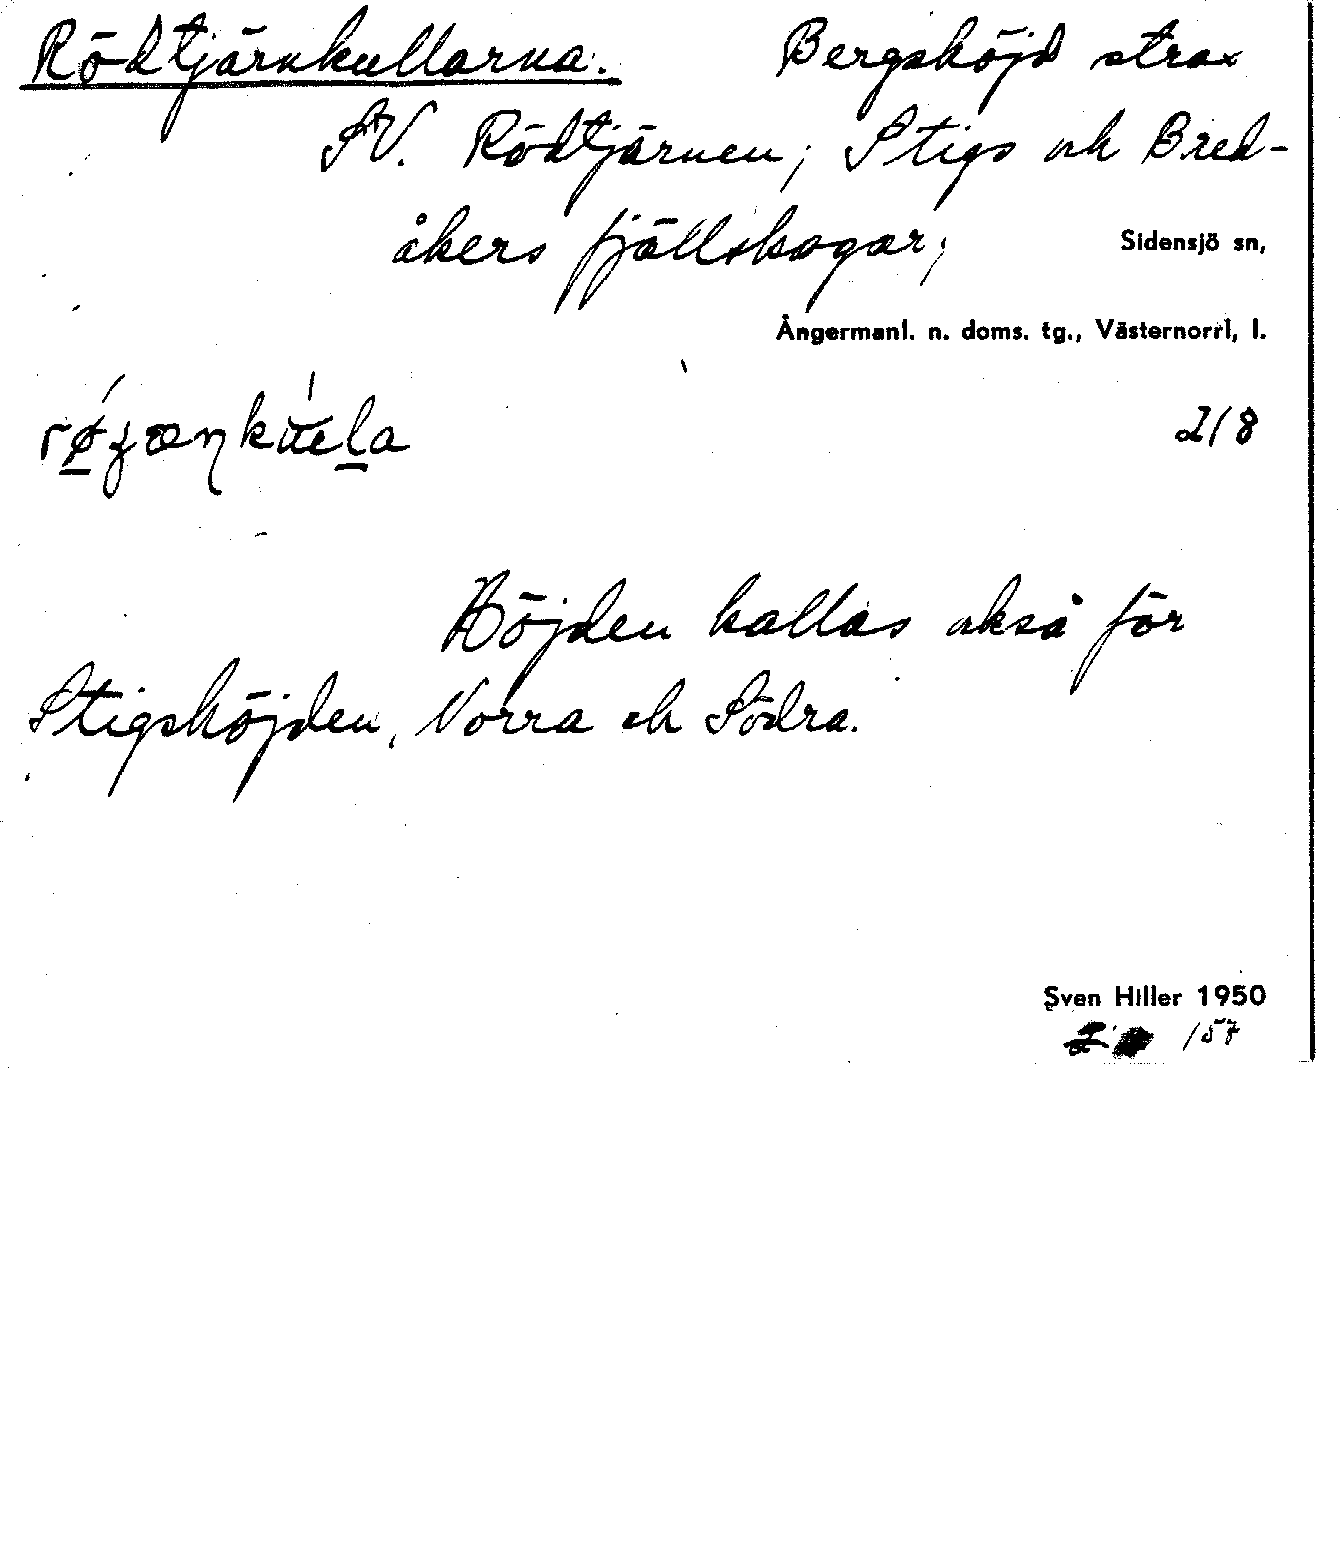 Rödtjärnkullarna. Bergshöjd strax
SV. Rödtjärnen; Stigs och Bred-
åkers fjällskogar;
Sidensjö sn,
Ångermanl. n. doms. tg., Västernorrl, l.
2/8
Höjden kallas också för
Stigshöjden, Norra och Södra.
Sven Hiller 1950
157